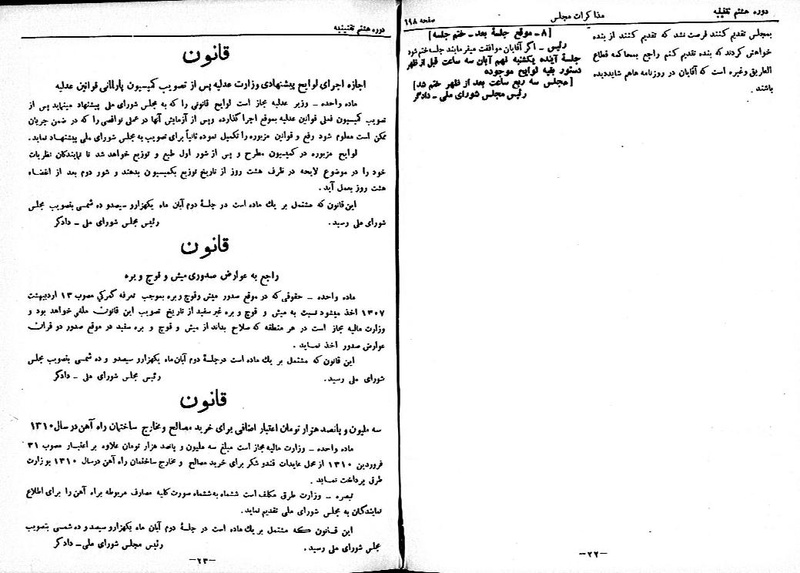 دوره هشتم تقنینیه
مذاکرات مجلس
صفحه ۱۹۸
بمجلس تقدیم کنند فرصت نشد که تقدیم کنند از بنده
خواهش کردند که بنده تقدیم کنم راجع بمحاکمه قطاع
الطریق وغیره است که آقایان در روزنامه هاهم شایددیده
باشند.
[۸ - موقع جلسهٔ بعد - ختم جلسه]
رئیس - اگر آقایان موافقت میفرمایند جلسه ختم شود
جلسهٔ آینده یکشنبه نهم آبان سه ساعت قبل از ظهر
دستور بقیه لوایح موجوده
[مجلس سه ربع ساعت بعد از ظهر ختم شد]
رئیس مجلس شورای ملی - دادگر
-۲۲-
دوره هشتم تقنینیه
قانون
اجازه اجرای لوایح پیشنهادی وزارت عدلیه پس از تصویب کمیسیون پارلمانی قوانین عدلیه
ماده واحده - وزیر عدلیه مجاز است لوایح قانونی را که به مجلس شورای ملی پیشنهاد مینماید پس از
تصویب کمیسیون فعلی قوانین عدلیه بموقع اجرا گذارده وپس از آزمایش آنها در عمل نواقصی را که در ضمن جریان
ممکن است معلوم شود رفع و قوانین مزبوره را تکمیل نموده ثانیاً برای تصویب به مجلس شورای ملی پیشنهاد نماید.
لوایح مزبوره در کمیسیون مطرح و پس از شور اول طبع و توزیع خواهد شد تا نمایندگان نظریات
خود را در موضوع لایحه در ظرف هشت روز از تاریخ توزیع بکمیسیون بدهند و شور دوم بعد از انقضاء
هشت روز بعمل آید.
این قانون که مشتمل بر یك ماده است در جلسهٔ دوم آبان ماه یکهزارو سیصدو ده شمسی بتصویب مجلس
شورای ملی رسید. رئیس مجلس شورای ملی - دادگر
قانون
راجع به عوارض صدوری میش و قوچ و بره
ماده واحده - حقوقی که در موقع صدور میش وقوچ و بره بموجب تعرفه گمرکی مصوب ۱۳ اردیبهشت
۱۳۰۷ اخذ میشود نسبت به میش و قوچ و بره غیر سفید از تاریخ تصویب این قانون ملغی خواهد بود و
وزارت مالیه مجاز است در هر منطقه که صلاح بداند از میش و قوچ و بره سفید در موقع صدور دو قران
عوارض صدور اخذ نماید.
این قانون که مشتمل بر یك ماده است درجلسهٔ دوم آبان ماه یکهزارو سیصدو و ده شمسی بتصویب مجلس
شورای ملی رسید. رئیس مجلس شورای ملی - دادگر
قانون
سه ملیون و پانصد هزار تومان اعتبار اضافی برای خرید مصالح و مخارج ساختمان راه آهن در سال ۱۳۱۰
ماده واحده - وزارت مالیه مجاز است مبلغ سه ملیون و پانصد هزار تومان علاوه بر اعتبار مصوب ۳۱
فروردین ۱۳۱۰ از محل عایدات قندو شکر برای خرید مصالح و مخارج ساختمان راه آهن درسال ۱۳۱۰ بوزارت
طرق پرداخت نماید.
تبصره - وزارت طرق مکلف است ششماه به ششماه صورت کلیه مصارف مربوطه براه آهن را برای اطلاع
نمایندگان به مجلس شورای ملی تقدیم نماید.
این قانون که مشتمل بر یك ماده است در جلسهٔ دوم آبان ماه یکهزار و سیصدو ده شمسی بتصویب
مجلس شورای ملی رسید. رئیس مجلس شورای ملی - دادگر
-۲۳-